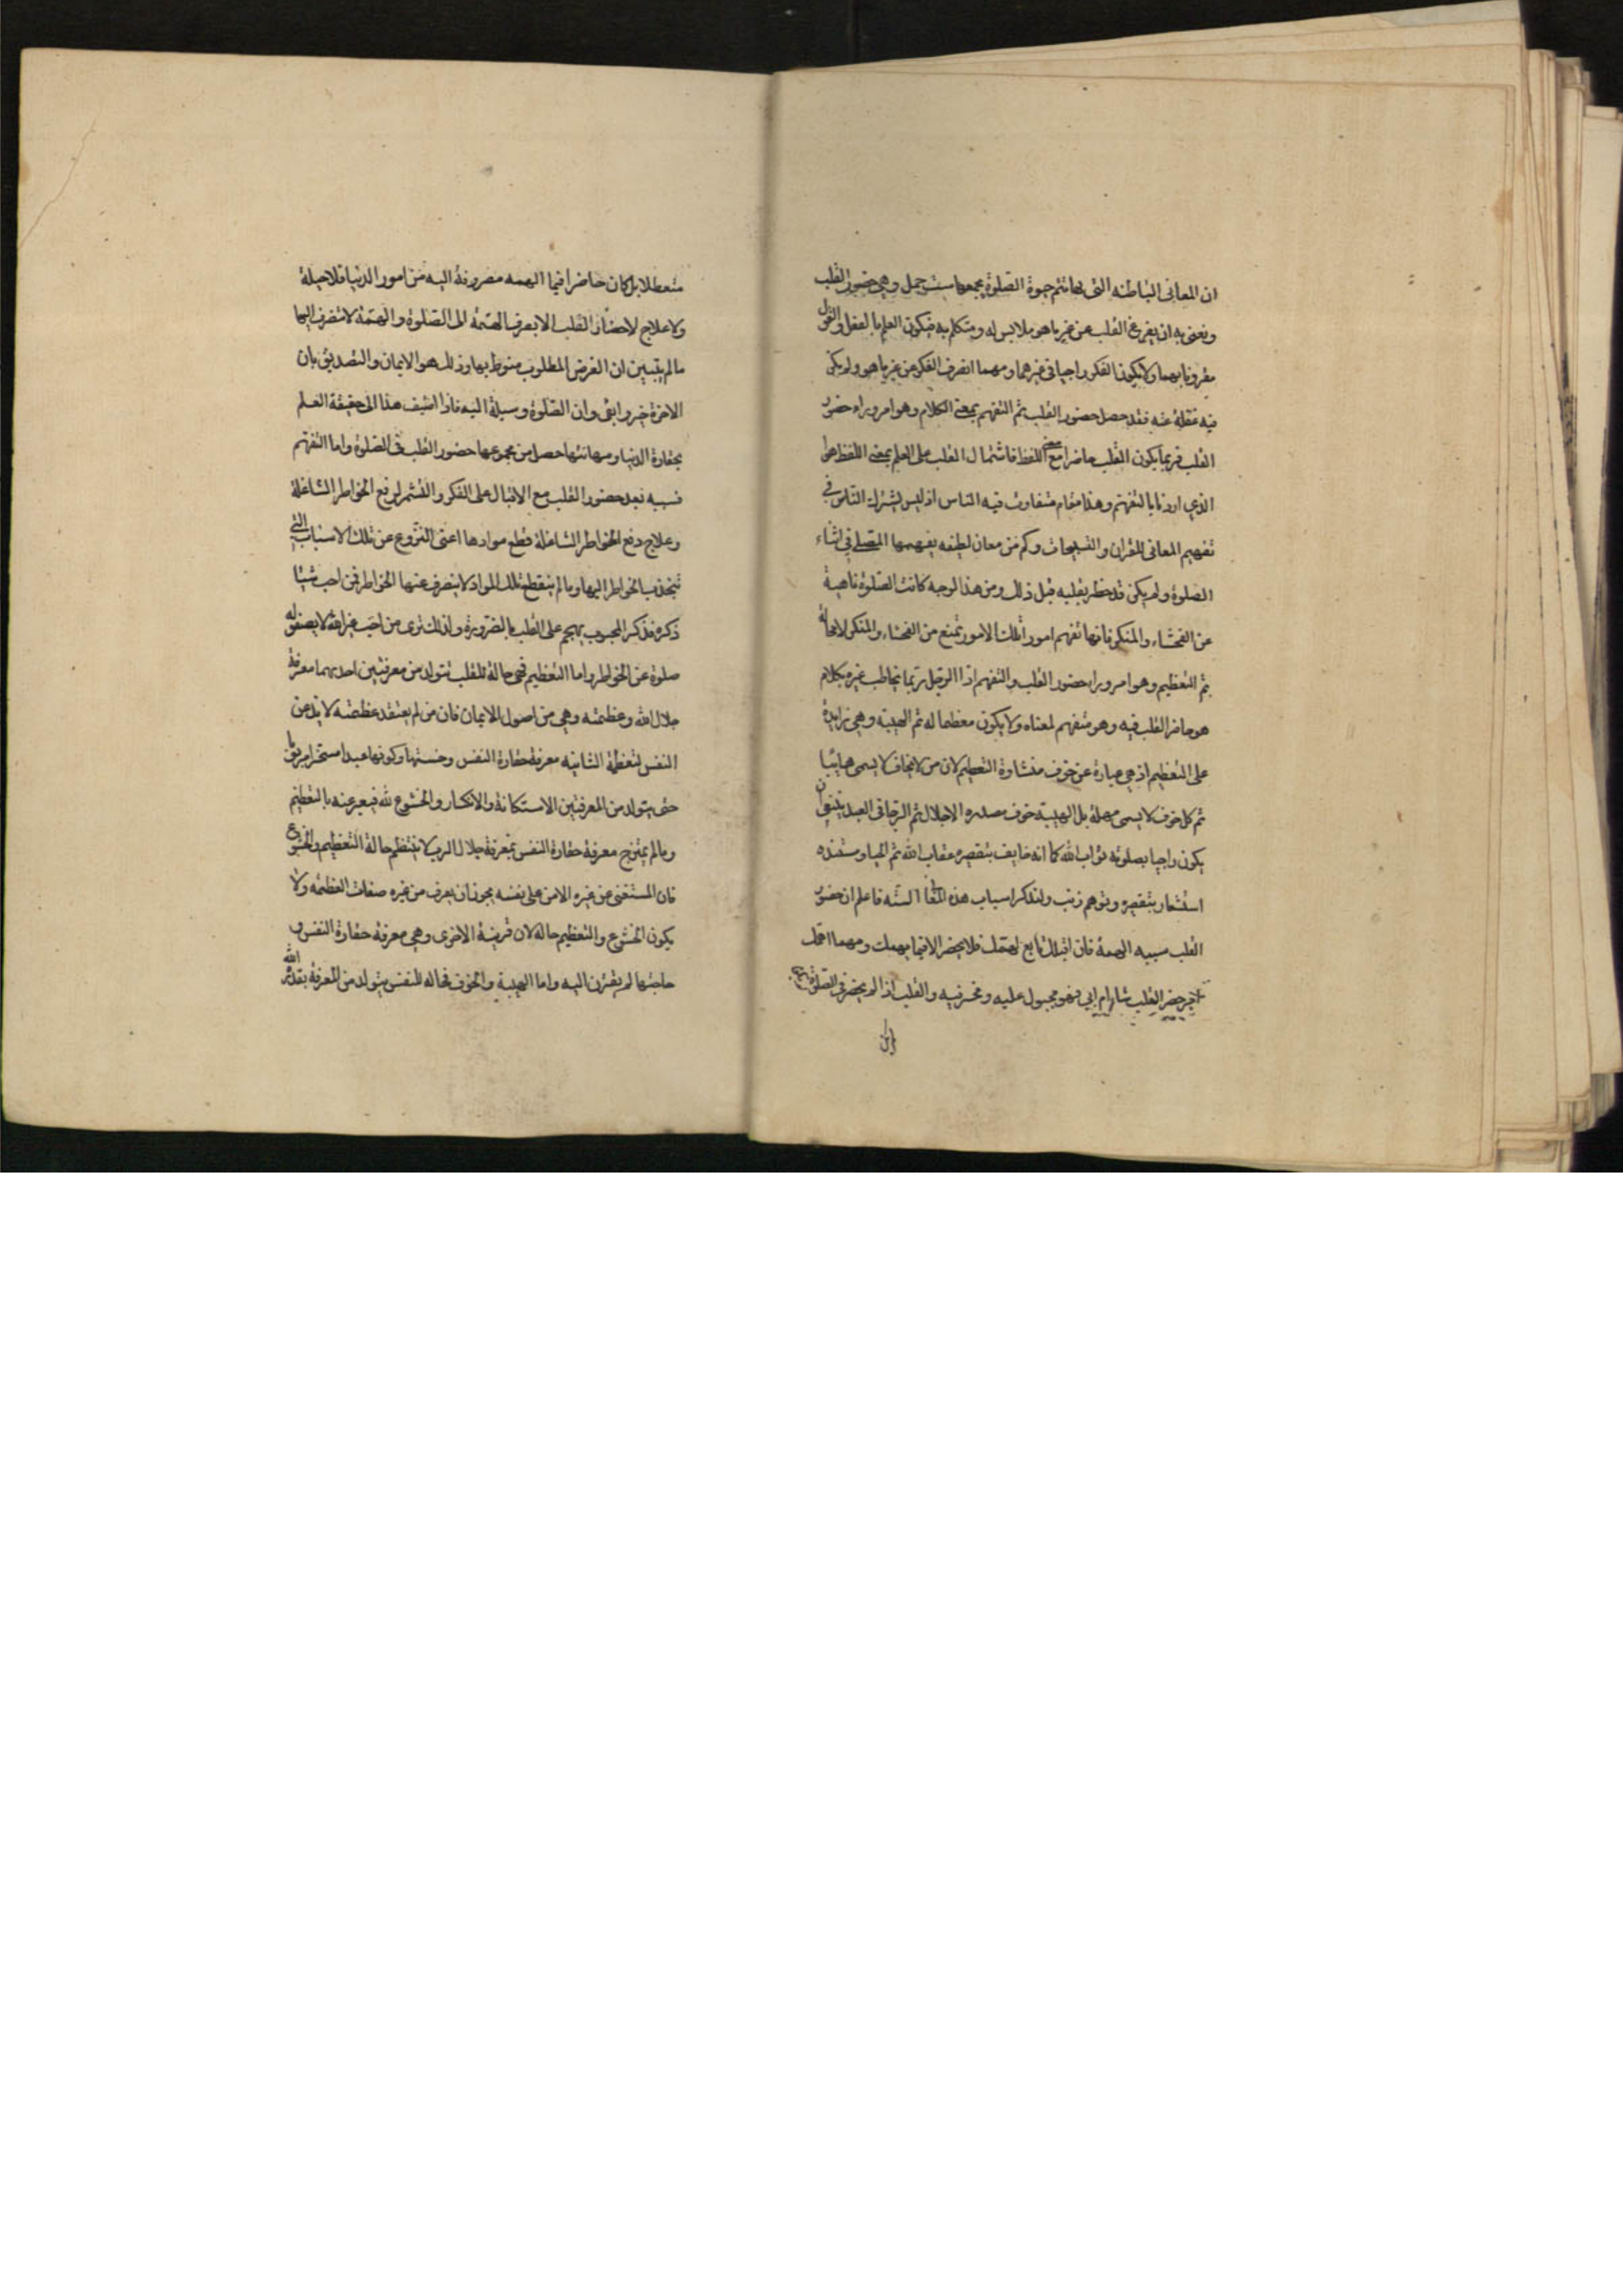 ان المعاني الباطنه التي بها تتم حيوة الصلوة يجمعها ست جمل وهي حضور القلب
ونعني به ان يفرغ القلب عن غير ما هو ملابس له ومتكلم به فيكون العلم بالفعل والقول
مقرونا بهما ولا يكون الفكر اجيا في غيرهما ومهما انصرف الفكر عن غير ما هو ولم يكن
فيه غفلة عنه فقد حصل حضور القلب ثم التفهم بمعنى الكلام وهو امر وراء حضور
القلب فربما يكون القلب حاضرا مع اللفظ فاشتمال القلب على العلم بمعنى اللفظ هو
الذي اردنا بالتفهم وهذا مقام متفاوت فيه الناس اذ ليس يشترك الناس في
تفهيم المعاني للقران والتسبيحات وكم من معان لطيفه يفهمها المصلي في اثناء
الصلوة ولم يكن قد خطر بقلبه قبل ذلك ومن هذا لوجه كانت الصلوة ناهية
عن الفحشاء والمنكر فانها تفهم امور اتلك الامور تمنع من الفحشاء والمنكر لا محالة
ثم التعظيم وهو امر وراء حضور القلب والتفهم اذا الرجل ربما يخاطب غيره بكلام
هو حاضر القلب فيه وهو متفهم لمعناه ولا يكون معظما له ثم الهيبة وهي زايدة
على التعظيم اذ هي عبارة عن خوف منشاوة التعظيم لان من لا يخاف لا يسمى هايبا
ثم كل خوف لا يسمى مهابة بل الهيبة خوف مصدره الاجلال ثم الرجا فى العبد ينبغي ان
يكون راجيا بصلوته ثواب الله كما انه خايف بتقصيره عقاب الله ثم الحيا ومستنده
استشعار بتقصيره وتوهم ذنب ولنذكر اسباب هذه المعاني الستة فاعلم ان حضور
القلب سببه الهمة فان قلبك تابع لهمك فلا يحضر الا فيما يهمك ومهما اهمك
امر حضر القلب شاء ام ابى فهو مجبول عليه ومسخر فيه والقلب اذا لم يحضر في الصلوة لم يكن
متعطلا بل كان حاضرا فيما الهمه مصروفة اليه من امور الدنيا فلا حيلة
ولا علاج لاحضار القلب الا بصرف الهمة الى الصلوة والهمة لا تنصرف اليها
ما لم يتبين ان الغرض المطلوب منوط بها وذلك هو الايمان والتصديق بان
الاخرة خير وابقى وان الصلوة وسيلة اليه فاذا اضيف هذا الى حقيقة العلم
بحقارة الدنيا ومهانتها حصل من مجموعها حضور القلب في الصلوة واما التفهم
فسببه بعد حضور القلب مع الاقبال على الفكر والتشمر لرفع الخواطر الشاغلة
وعلاج دفع الخواطر الشاغلة قطع موادها اعني النزوع عن تلك الاسباب التي
تنجذب الخواطر اليها وما لم ينقطع تلك المواد لا ينصرف عنها الخواطر فمن احب شيئا
ذكره فذكر المحبوب يهجم على القلب بالضرورة ولذلك ترى من احب غير الله لا يصفو له
صلوة عن الخواطر واما التعظيم فهي حالة للقلب تتولد من معرفتين احديهما معرفة
جلال الله وعظمته وهي من اصول الايمان فان من لم يعتقد عظمته لا يذعن
النفس لتعظمة الثانيه معرفة حقارة النفس وخستها وكونها عبدا مستخرا مربوبا
حتى يتولد من المعرفتين الاستكانة والانكسار والخشوع لله فيعبر عنه بالتعظيم
وما لم يمتزج معرفة حقارة النفس بمعرفة جلال الرب لا تنتظم حالة التعظيم والخشوع
فان المستغنى عن غيره الامن على نفسه يجوز ان يعرف من غيره صفات العظمه ولا
يكون الخشوع والتعظيم حاله لان قرينة الاخرى وهي معرفة حقارة النفس و
حاجتها لم يقترن اليه واما الهيبة والخوف فحالة للنفس يتولد من المعرفة بقدرة الله